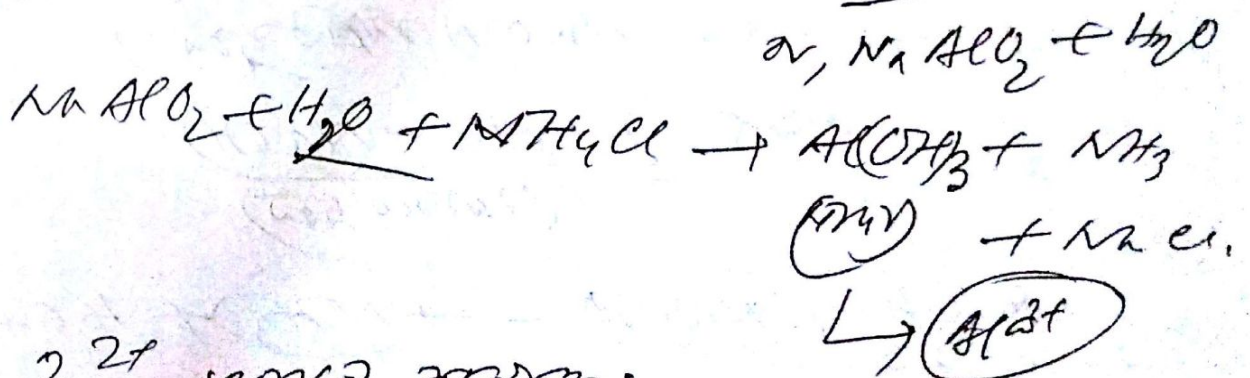 or, NaAlO₂ + H₂O
NaAlO₂ + H₂O + NH₄Cl → Al(OH)₃ + NH₃
+ NaCl.
↳ Al³⁺
2+